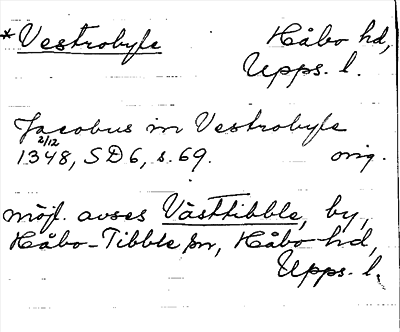 *Vestrobyle Håbo hd,
Upps. l.
Jacobus in Vestrobyle
2/12
1348, SD 6, s. 69. orig.
möjl. avses Västtibble, by,
Håbo-Tibble sn, Håbo hd,
Upps. l.